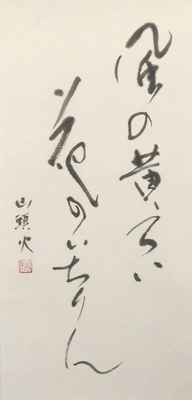 風の黄ろい
花のいちりん
山頭火